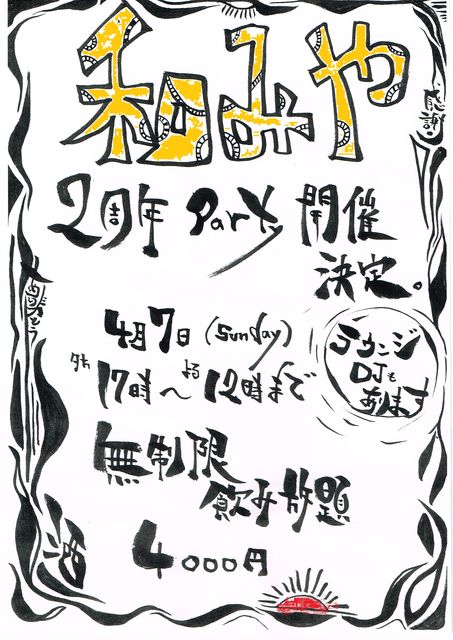 和みや
感謝。
2周年 Party 開催
決定。
ありがとう
4月7日 (Sunday)
夕方 17時〜よる12時まで
ラウンジ
DJも
あります
無制限
飲み放題
酒
4000円